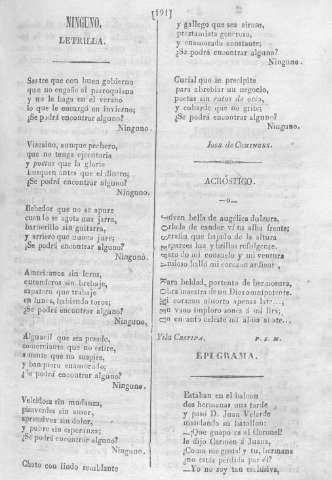 [191]
NINGUNO.
LETRILLA.
Sastre que con buen gobierno
que no engañe al parroquiano
y no le haga en el verano
lo que le encargó en invierno;
¿Se podrá encontrar alguno?
Ninguno.
Vizcaino, aunque pechero,
que no tenga ejecutoria
y poetas que la gloria
busquen antes que el dinero;
¿Se podrá encontrar alguno?
Ninguno.
Bebedor que no se apure
cuando se agota una jarra,
barberillo sin guitarra,
y arriero que nunca jure;
¿Se podrá encontrar alguno?
Ninguno.
Americanos sin
caleseros sin brebajo,
zapatero que trabaje
en lunes, habiendo toros;
¿Se podrá encontrar alguno?
Ninguno.
Alguacil que sea prendo,
comerciante que no retire,
amante que no suspire,
y banquero enamorado;
¿Se podrá encontrar alguno?
Ninguno.
Veleidosa sin mudanza,
pisaverdes sin amor,
aprendices sin dolor,
y pobre sin esperanza;
¿Se podrá encontrar alguno?
Ninguno.
Chato con lindo semblante
y gallego que sea airoso,
prestamista generoso,
y enamorado constante;
¿Se podrá encontrar alguno?
Ninguno.
Curial que se precipite
para abreviar su negocio,
poetas sin ratos de ocio,
y cobarde que no grite;
¿Se podrá encontrar alguno?
Ninguno.
Jose de
ACRÓSTICO.
Joven bella de angélica dulzura,
de candor vista alta frente;
que bajado de la altura
luz y brillas refulgente.
de mi consuelo y mi ventura
hallo mi corazon ardiente
Rara beldad, portento de hermosura,
Obra maestra de un Dios omnipotente.
Mi corazon absorto apenas
en vano imploro
Vela Cuerpea. P. S. M.
EPIGRAMA.
Estaban en el balcon
dos hermanas una tarde
y pasó D. Juan Velarde
mandando su batallon:
—¡Que guapo es el Coronel!
le dijo Carmen á Juana,
¡Como me gusta! y tu, hermana
¿no estás perdida por él?
—Yo no soy tan esclusiva,